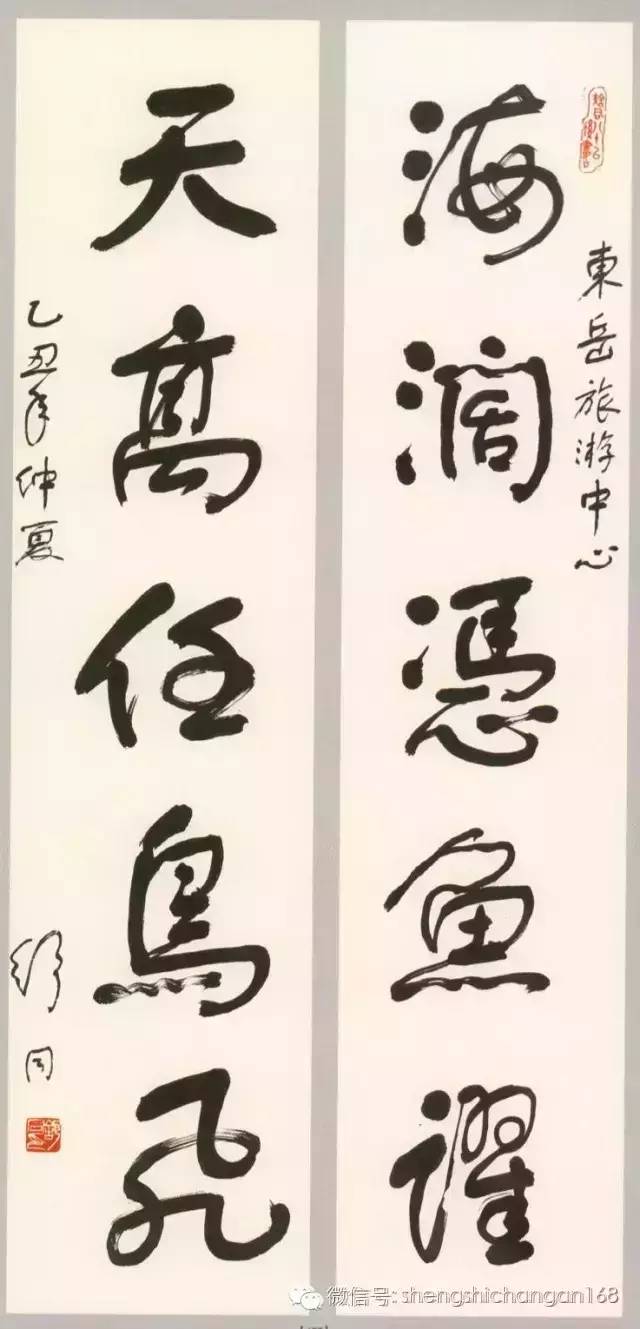 東岳旅游中心
海濶憑魚躍
天高任鳥飛
乙丑年仲夏
舒同
微信号: shengshichangan168